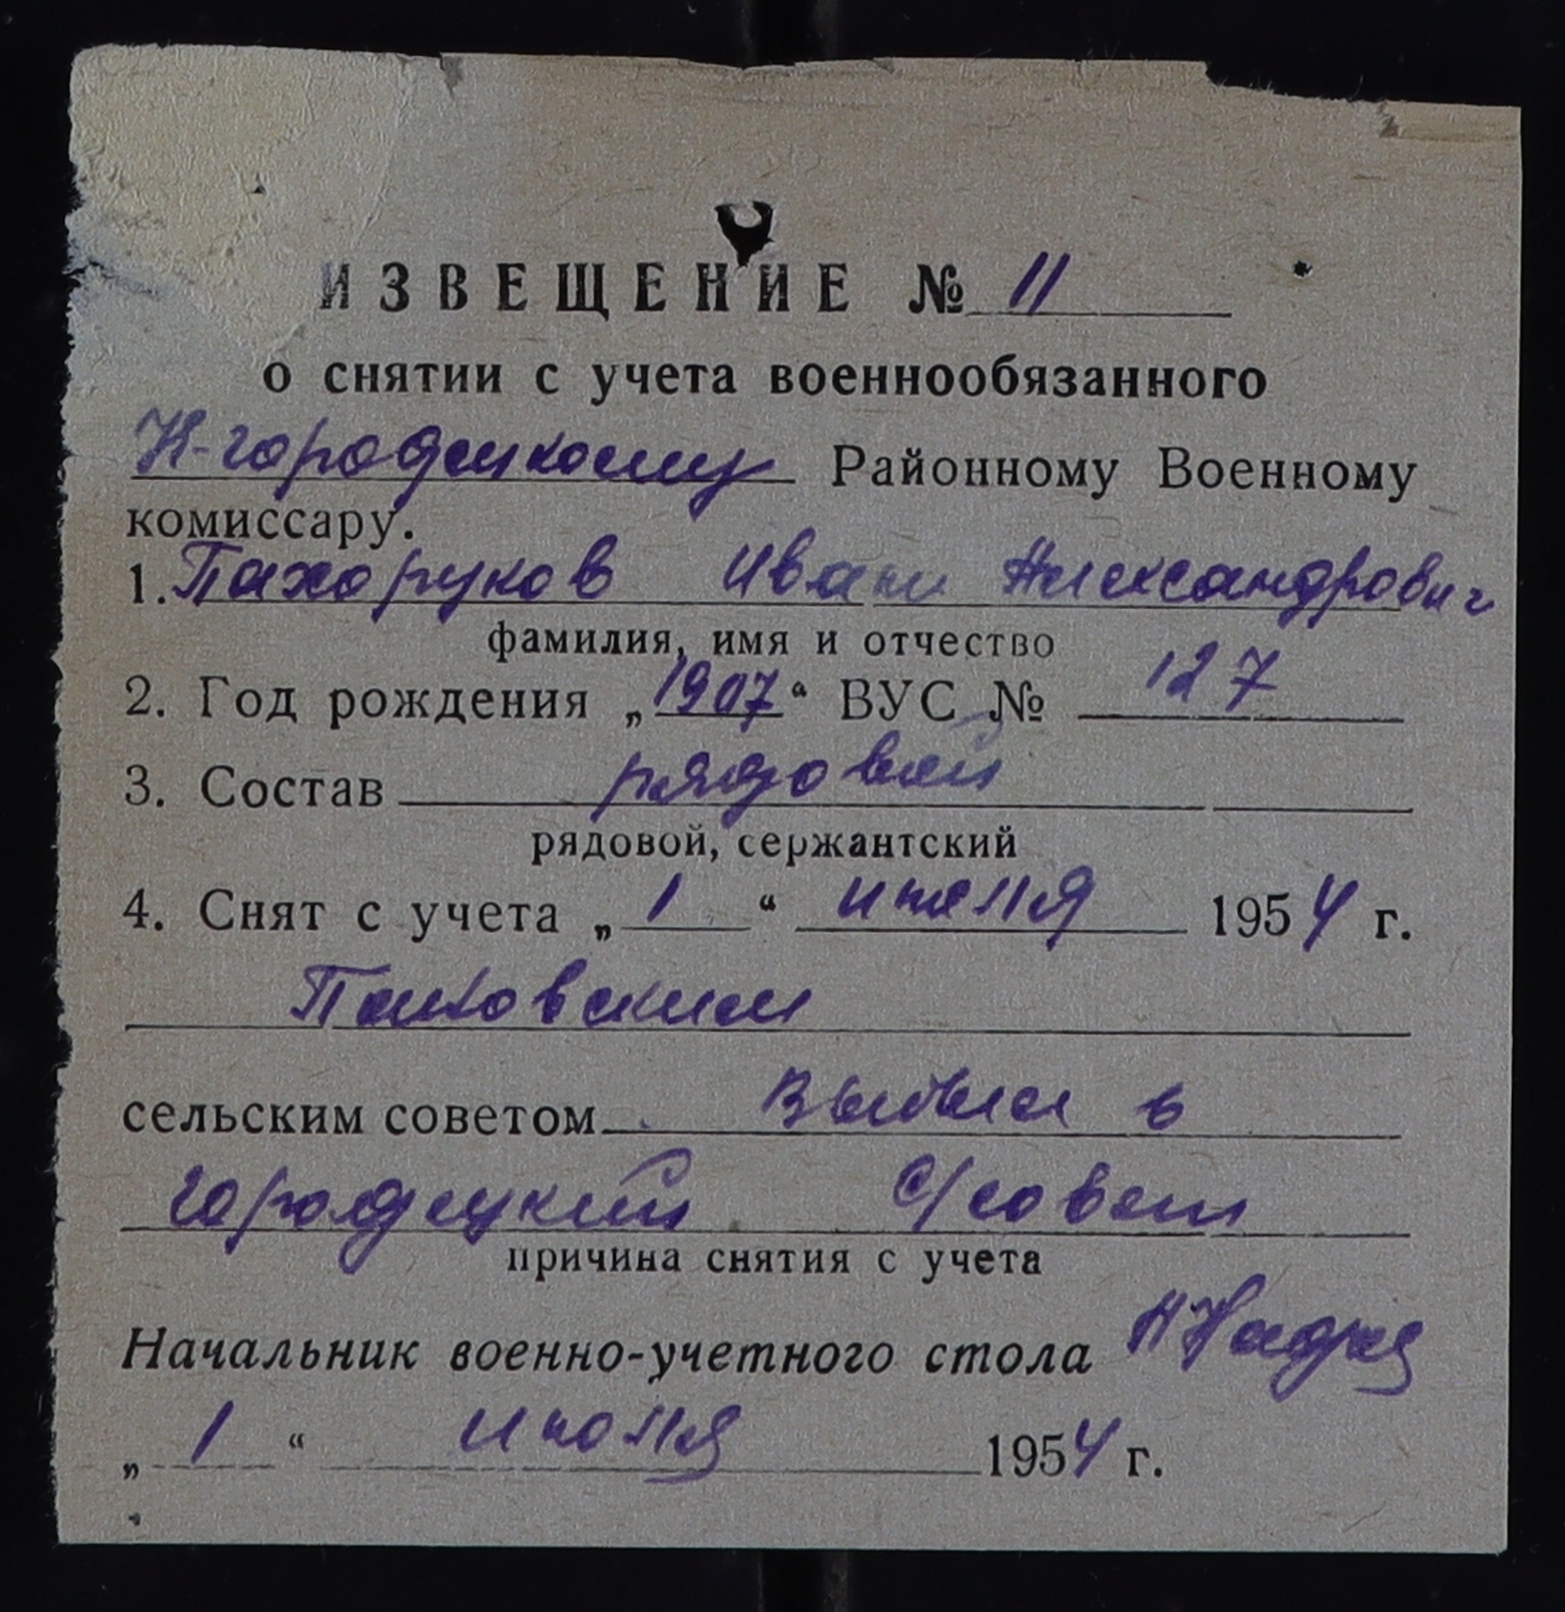 ИЗВЕЩЕНИЕ № 11
о снятии с учета военнообязанного
Н-городецкому Районному Военному
комиссару.
1. Пахоруков Иван Александрович
фамилия, имя и отчество
2. Год рождения „1907“ ВУС № 127
3. Состав рядовой
рядовой, сержантский
4. Снят с учета „1“ июля 1954 г.
сельским советом Выбыл в
городецкий с/совет
причина снятия с учета
Начальник военно-учетного стола
„1“ июля 1954 г.